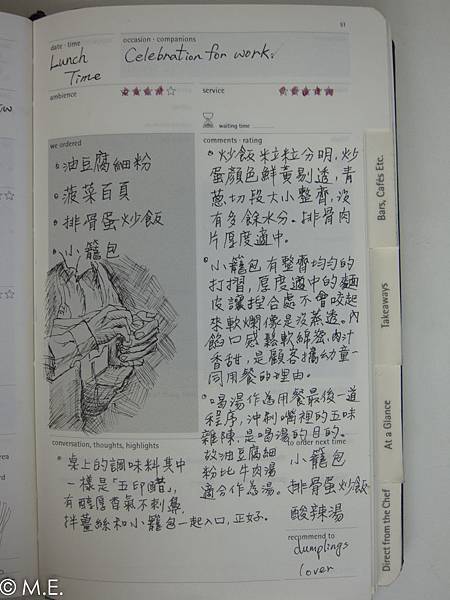 51
date · time
Lunch
Time
occasion · companions
Celebration for work.
ambience
service
waiting time
we ordered
油豆腐細粉
菠菜百頁
排骨蛋炒飯
小籠包
comments · rating
炒飯粒粒分明,炒
蛋顏色鮮黃剔透,青
蔥切段大小整齊,沒
有多餘水分。排骨肉
片厚度適中。
小籠包有整齊均勻的
打摺,厚度適中的麵
皮讓捏合處不會咬起
來軟爛像是沒蒸透。內
餡口感鬆軟綿密、肉汁
香甜,是顧客攜幼童一
同用餐的理由。
喝湯作為用餐最後一道
程序,沖刷嘴裡的五味
雜陳,是喝湯的目的。
故油豆腐細
粉比牛肉湯
適合作為湯。
conversation, thoughts, highlights
桌上的調味料其中
一樣是「五印醋」,
有醇厚香氣不刺鼻,
拌薑絲和小籠包一起入口,正好。
to order next time
小籠包
排骨蛋炒飯
酸辣湯
recommend to
dumplings
lover
Bars, Cafés Etc.
Takeaways
At a Glance
Direct from the Chef
© M.E.